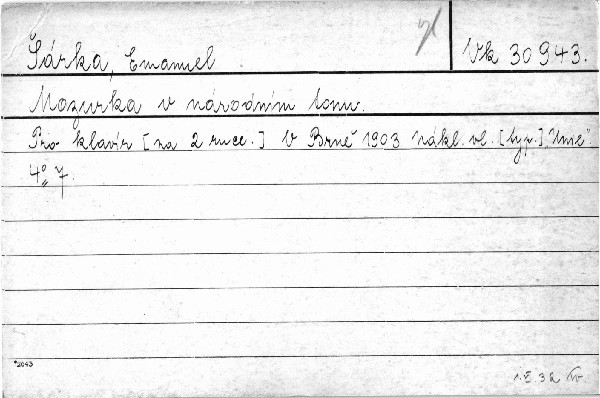 Šárka, Emanuel
Vk 30943.
Mazurka v národním tonu.
Pro klavír [na 2 ruce.] V Brně 1903 nákl. vl. [typ.] "Unie".
4° 7.
*2043